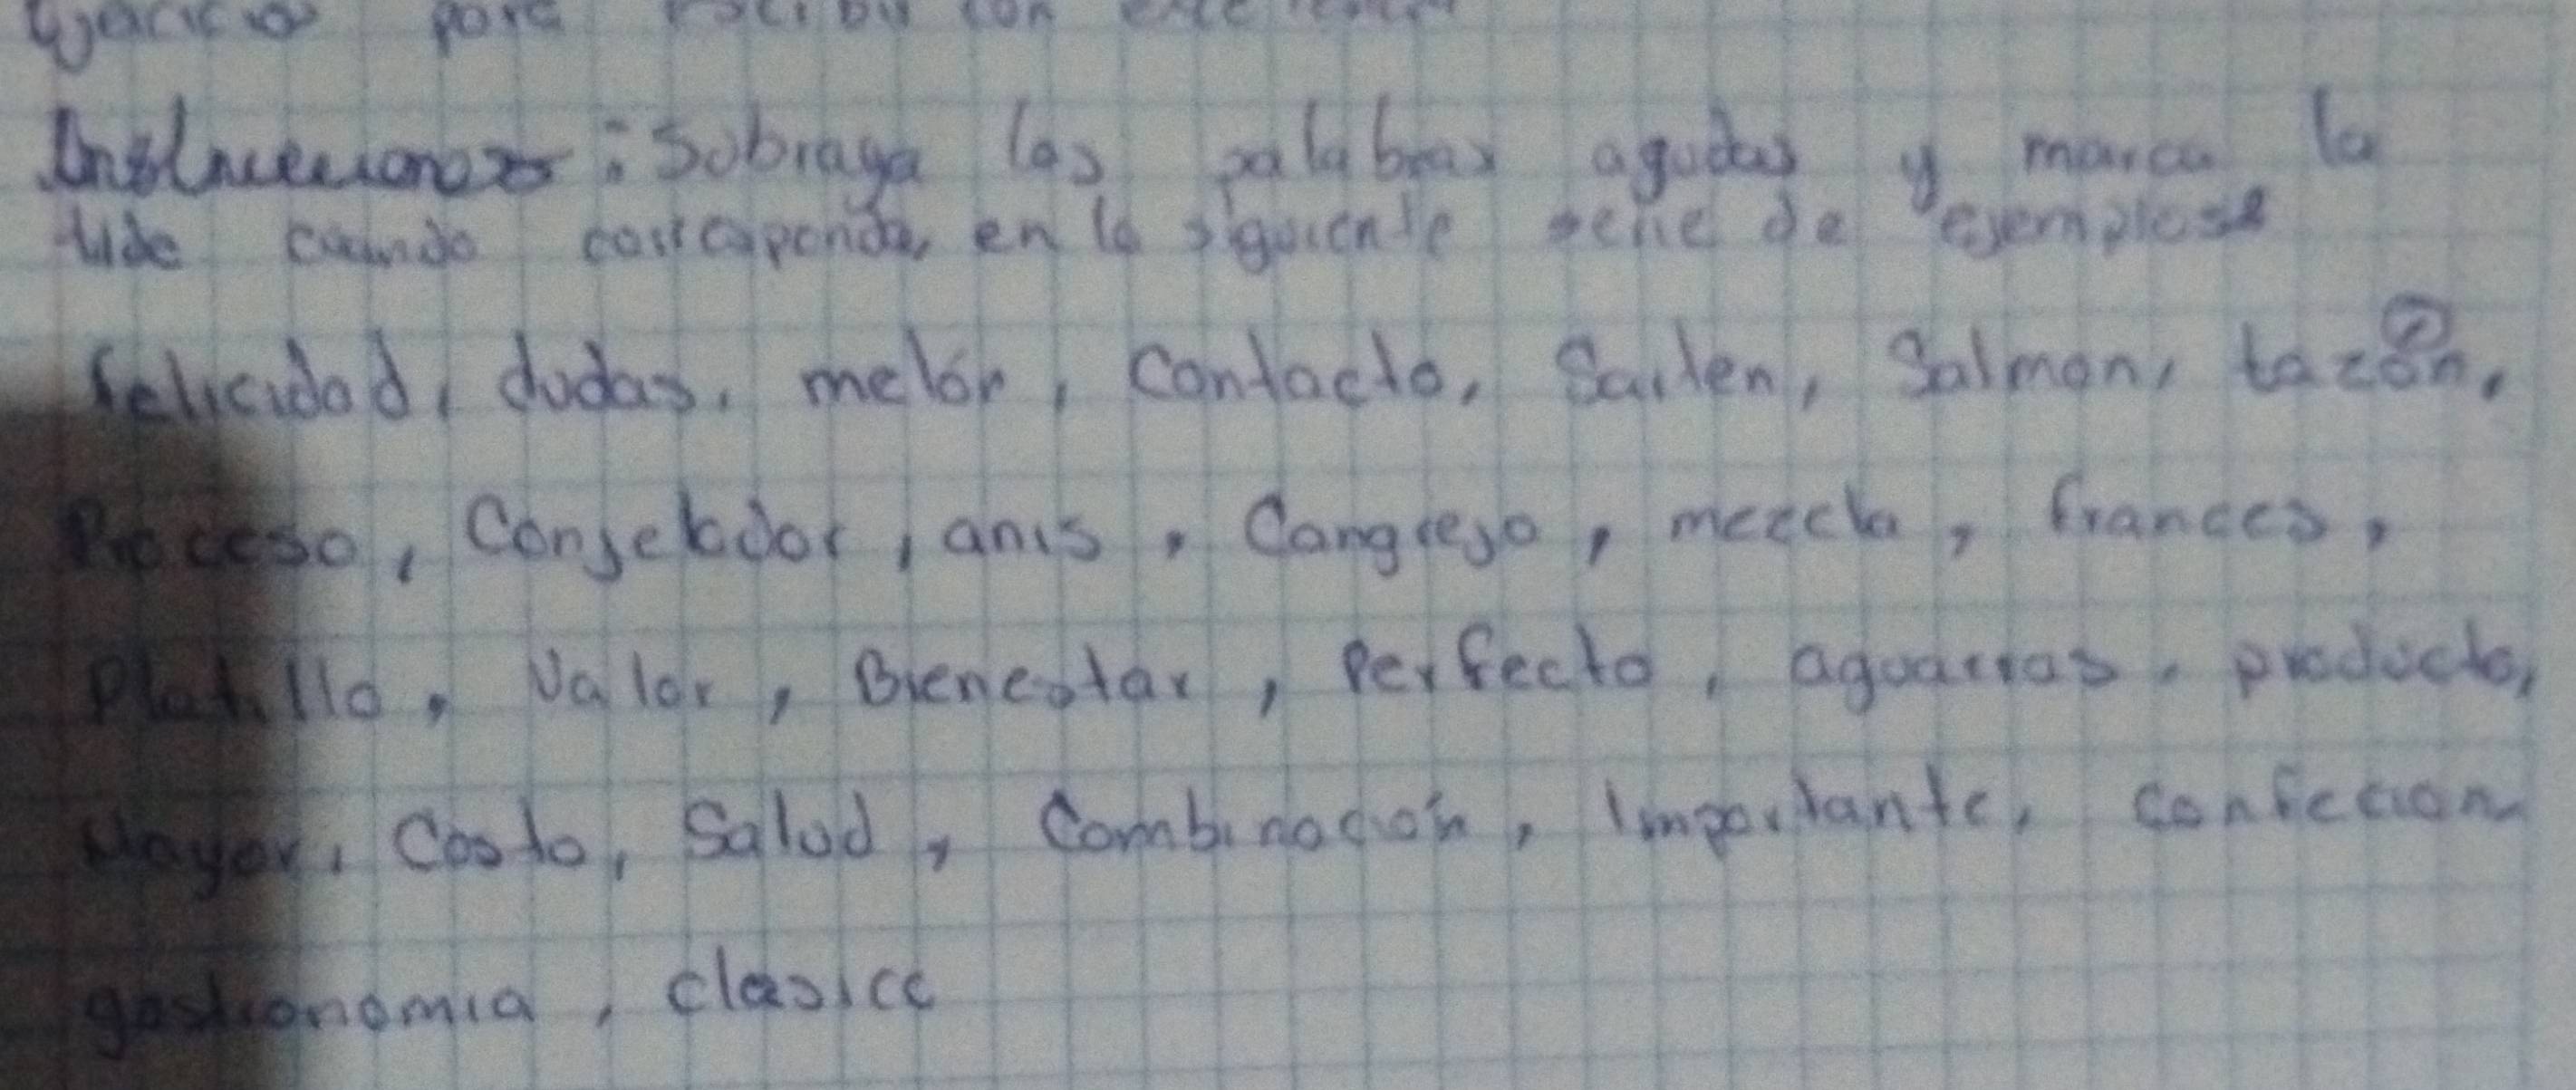 para escribir con
Instrucciones: Sobraya las palabras agudas y marca la
tilde cuando corresponda, en la siguiente serie de ejemplos
felicidad, dudas, melón, Contacto, Sarten, Salmon, tazón,
Proceso, Conjelador, anis, Cangrejo, mezcla, frances,
Platillo, Valor, Bienestar, Perfecto, aguarras, producto,
Mayor, Costo, Salud, Combinación, Importante, confeccion
gastronomia, clasico